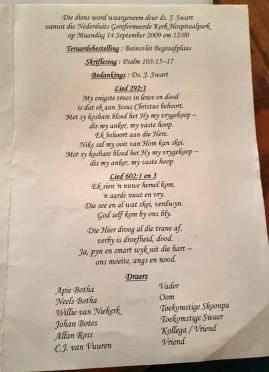 Die diens word waargeneem deur ds. J. Swart
vanuit die Nederduits Gereformeerde Kerk Hospitaalpark
op Maandag 14 September 2009 om 12:00
Teraardebestelling : Bainsvlei Begrafplaas
Skriflesing : Psalm 103:15-17
Bedankings : Ds. J. Swart
Lied 292:1
My enigste troos in lewe en dood
is dat ek aan Jesus Christus behoort.
Met sy kosbare bloed het Hy my vrygekoop –
dis my anker, my vaste hoop.
Ek behoort aan die Here.
Niks sal my ooit van Hom kan skei.
Met sy kosbare bloed het Hy my vrygekoop –
dis my anker, my vaste hoop.
Lied 602:1 en 3
Ek sien 'n nuwe hemel kom,
'n aarde nuut en vry.
Die see en al wat skei, verdwyn.
God self kom by ons bly.
Die Heer droog al die trane af,
verby is droefheid, dood.
Ja, pyn en smart wyk uit die hart –
ons moeite, angs en nood.
Draers
Apie Botha Vader
Neels Botha Oom
Willie van Niekerk Toekomstige Skoonpa
Johan Botes Toekomstige Swaer
Allan Ross Kollega / Vriend
C.J. van Vuuren Vriend